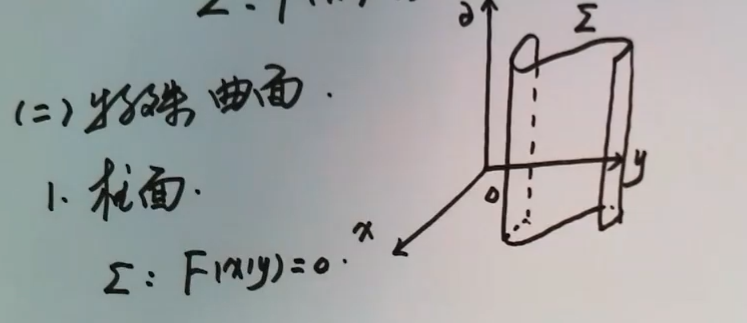 Σ:
(二) 特殊曲面.
1. 柱面.
Σ: F(x,y)=0.
z
Σ
y
0
x